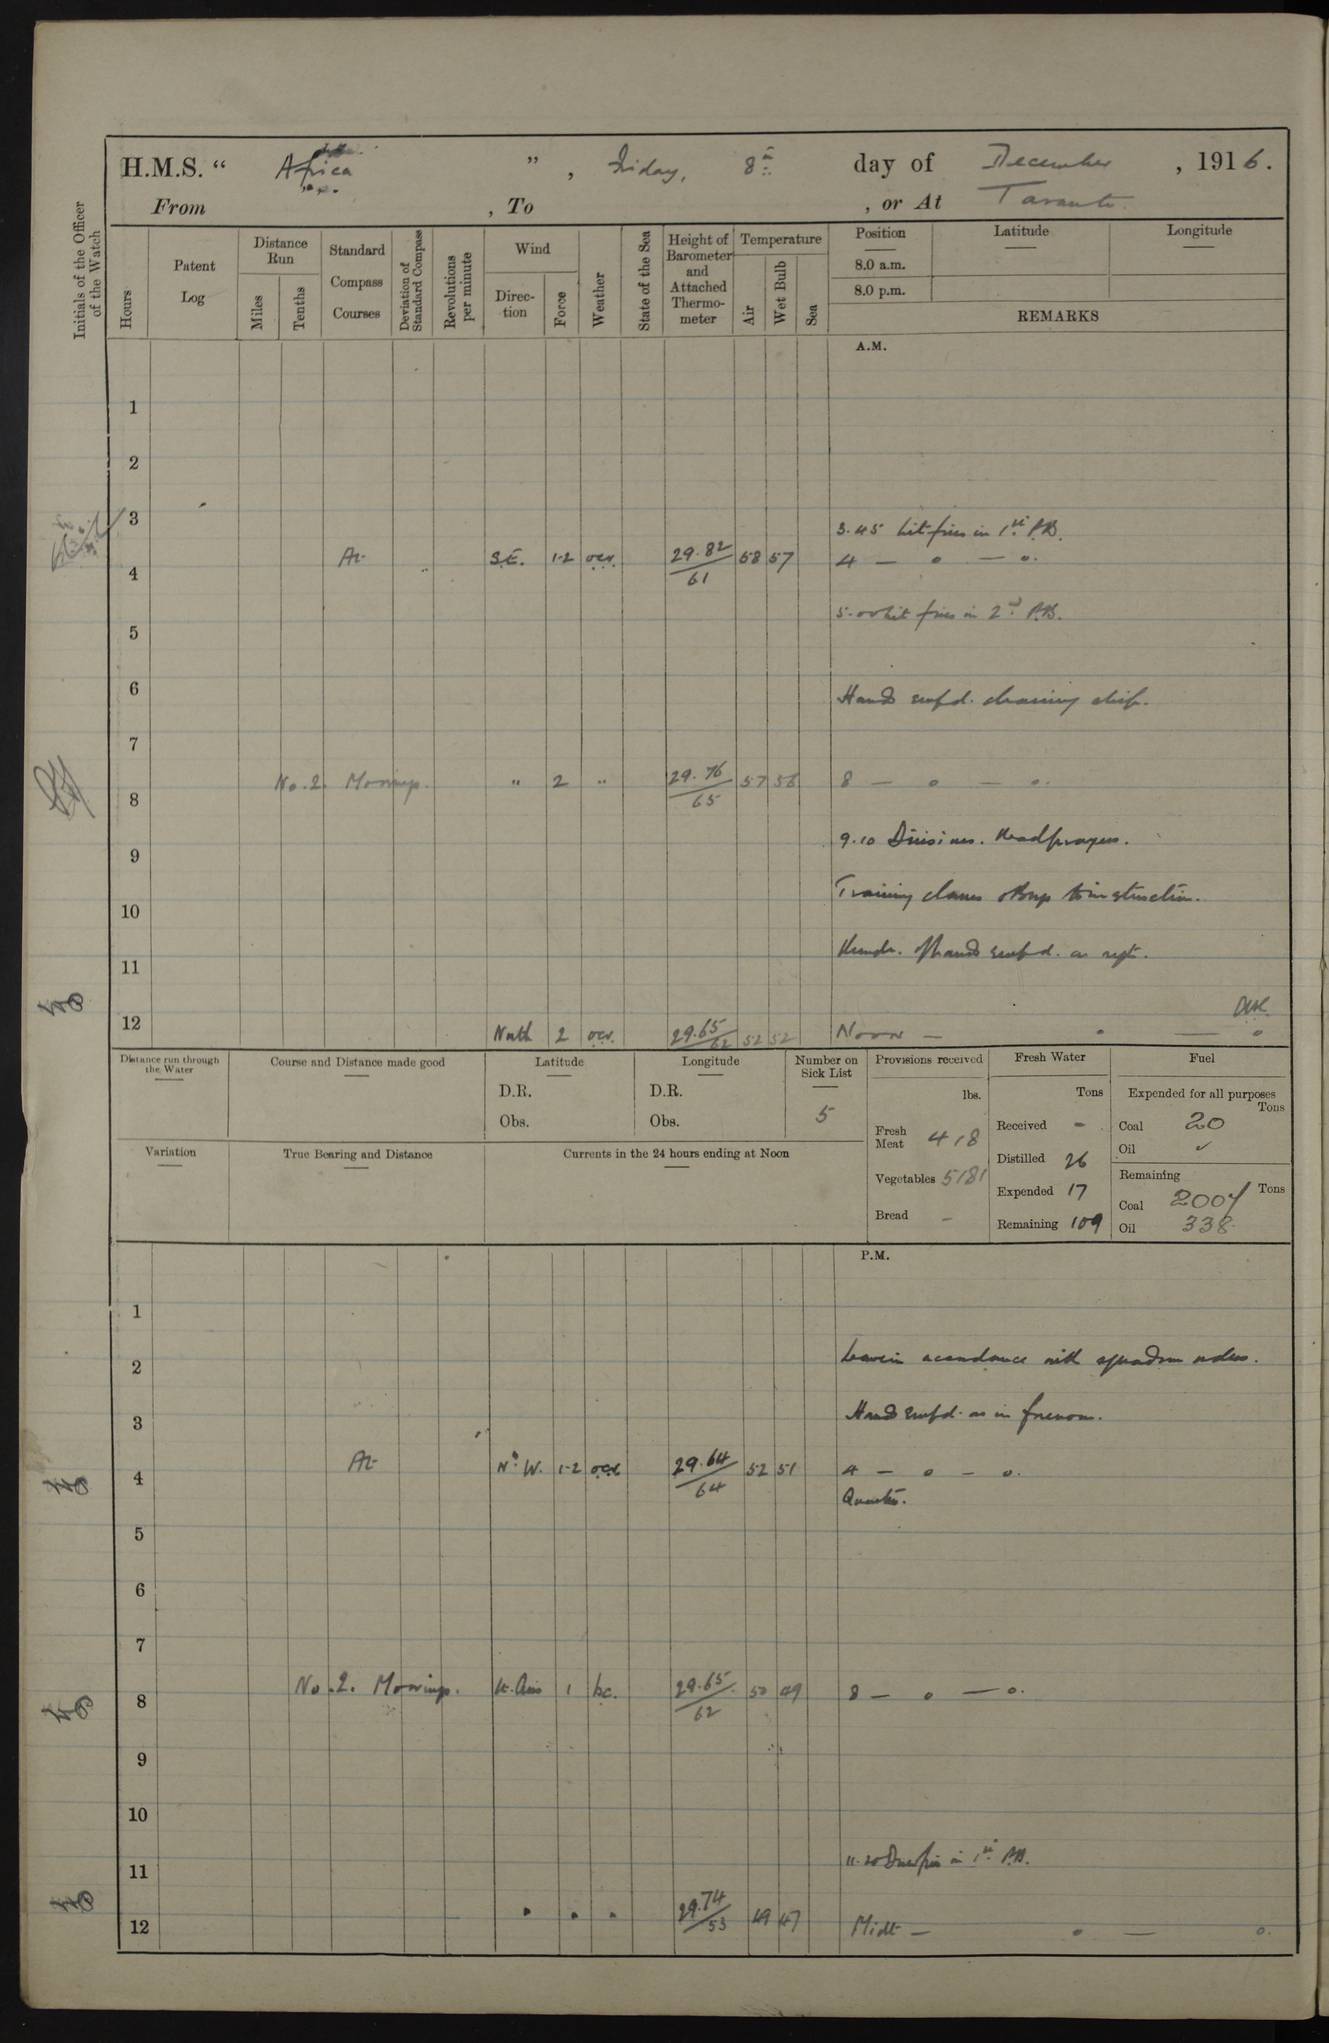 H.M.S. “ Africa ” , Friday, 8th day of December , 1916.
From , To , or At Taranto.
Initials of the Officer of the Watch
Hours
Patent Log
Distance Run
Miles
Tenths
Standard Compass Courses
Deviation of Standard Compass
Revolutions per minute
Wind
Direc-tion
Force
Weather
State of the Sea
Height of Barometer and Attached Thermo-meter
Temperature
Air
Wet Bulb
Sea
Position
8.0 a.m.
8.0 p.m.
Latitude
Longitude
REMARKS
A.M.
1
2
3
3.45 lit fires in 1st P.B.
4 At S.E. 1-2 ocr. 29.82/61 58 57 4 — o — o.
5.00 lit fires in 2nd P.B.
5
6
Hands empd. cleaning ship.
7
8 No. 2. Moorings. " 2 " 29.76/65 57 56 8 — o — o.
9.10 Divisions. Read prayers.
9
Training classes to instruction.
10
Remdr. of hands empd. as reqt.
11
12 North 2 ocr. 29.65/62 52 52 Noon — o — o
Distance run through the Water
Course and Distance made good
Latitude
D.R.
Obs.
Longitude
D.R.
Obs.
Number on Sick List
5
Provisions received
lbs.
Fresh Meat 418
Vegetables 5181
Bread -
Fresh Water
Tons
Received -
Distilled 26
Expended 17
Remaining 109
Fuel
Expended for all purposes
Tons
Coal 20
Oil
Remaining
Tons
Coal 2007
Oil 338
Variation
True Bearing and Distance
Currents in the 24 hours ending at Noon
P.M.
1
2
Leave in accordance with squadron orders.
3
Hands empd. as in forenoon.
4 At No W. 1-2 ocr 29.64/64 52 51 4 — o — o.
Quarters.
5
6
7
8 No. 2. Moorings. Lt. Airs 1 bc. 29.65/62 50 49 8 — o — o.
9
10
11
11.20 Drew fires in 1st P.B.
12 " " " 29.74/53 49 47 Midt — o — o.